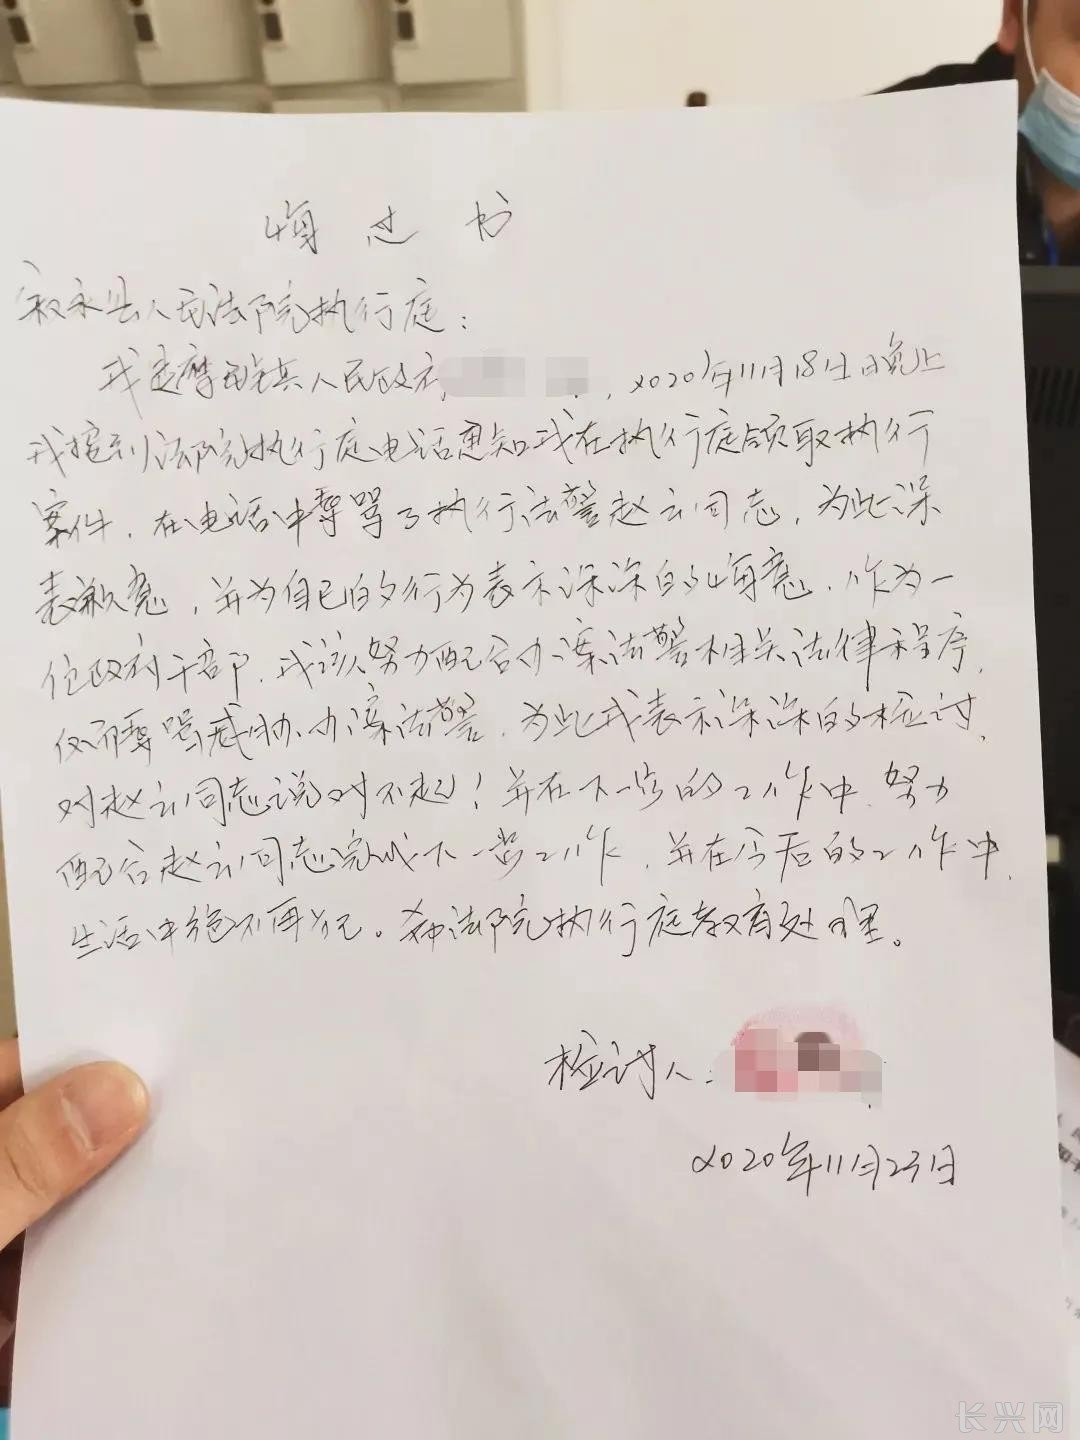 悔过书
叙永县人民法院执行庭：
我是摩尼镇人民政府，2020年11月18日晚上
我接到法院执行庭电话通知我在执行庭领取执行
案件，在电话中辱骂了执行法警赵云同志，为此深
表歉意，并为自己的行为表示深深的悔意，作为一
位政府干部，我该努力配合办案法警相关法律程序，
仅而辱骂威胁办案法警，为此我表示深深的检讨，
对赵云同志说对不起！并在下一步的工作中，努力
配合赵云同志完成下一步工作，并在今后的工作中，
生活中绝不再犯。法院执行庭教育处理。
检讨人：
2020年11月23日
长兴网